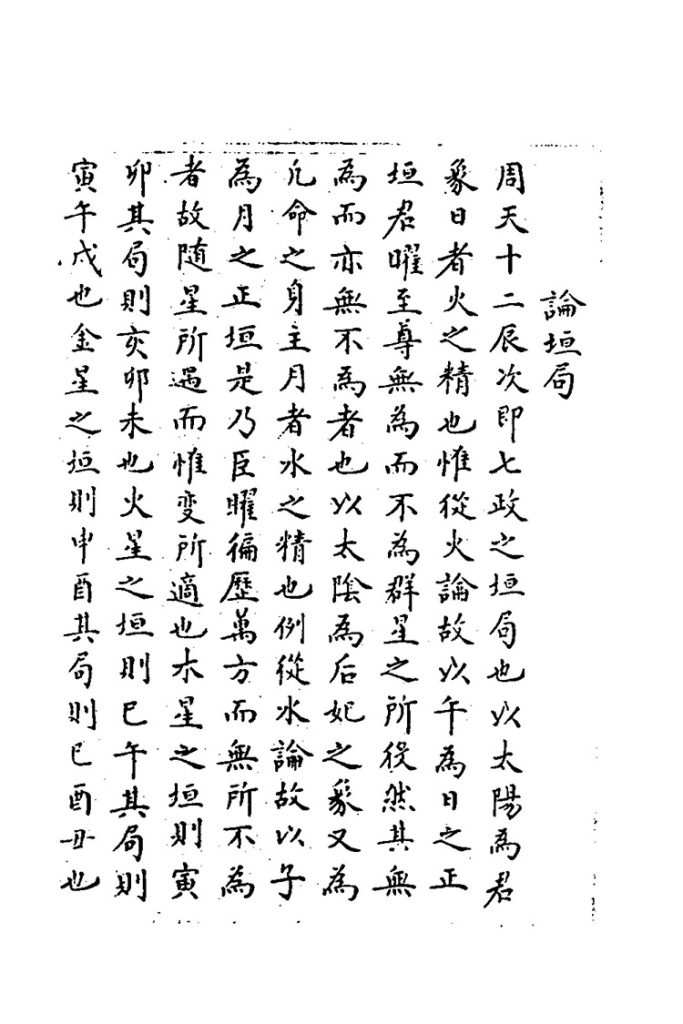 論垣局
周天十二辰次即七政之垣局也以太陽為君
象日者火之精也惟從火論故以午為日之正
垣君曜至尊無為而不為群星之所役然其無
為而亦無不為者也以太陰為后妃之象又為
凢命之身主月者水之精也例從水論故以子
為月之正垣是乃臣曜徧歷萬方而無所不為
者故随星所遇而惟变所適也木星之垣則寅
卯其局則亥卯未也火星之垣則巳午其局則
寅午戌也金星之垣則申酉其局則巳酉丑也